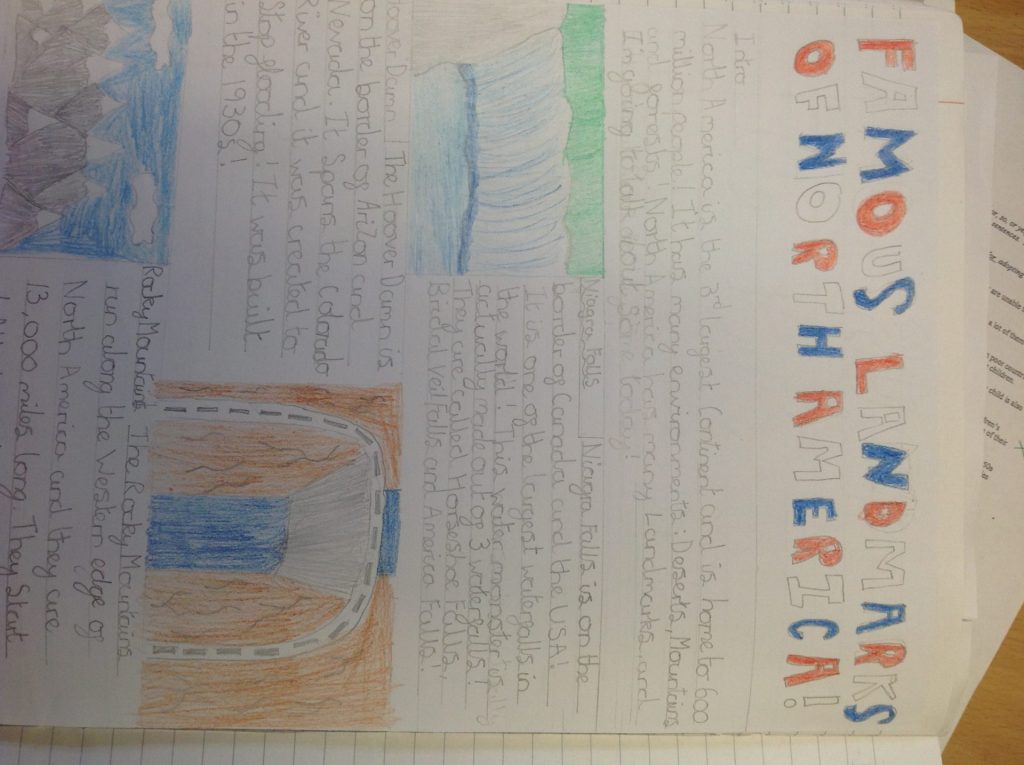 FAMOUS LANDMARKS
OF NORTH AMERICA!
Intro
North America is the 3rd largest Continent and is home to 600
million people! It has many environments: Deserts, Mountains
and forests! North America has many Landmarks and
I'm going to talk about some today!
Niagra falls Niagra Falls is on the
border of Canada and the USA!
It is one of the largest waterfalls in
the world! This water monster is
actually made out of 3 waterfalls!
They are called Horseshoe Falls,
Bridal veil Falls and America Falls!
Hoover Damn The Hoover Damn is
on the border of Arizon and
Nevada. It Spans the Colorado
River and it was created to
Stop flooding! It was built
in the 1930s!
Rocky Mountains The Rocky Mountains
run along the Western edge of
North America and they are
13,000 miles long. They Start
or, so, or ye
sentences.
for adopting
are unable
a lot of them
poor countr
children.
child is also
of their